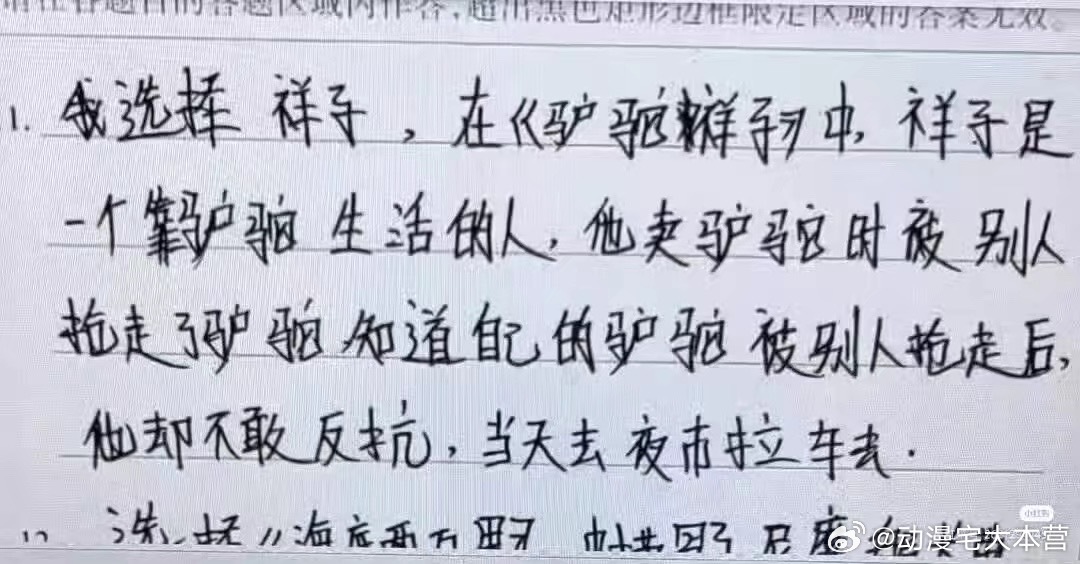 请在各题目的答题区域内作答，超出黑色矩形边框限定区域的答案无效。
1. 我选择 祥子，在《驴驼祥子》中，祥子是
一个靠驴驼 生活的人，他卖驴驼时被 别人
抢走了驴驼 知道自己的驴驼 被别人抢走后，
他却不敢反抗，当天去 夜市拉车去.
小红书
@动漫宅大本营